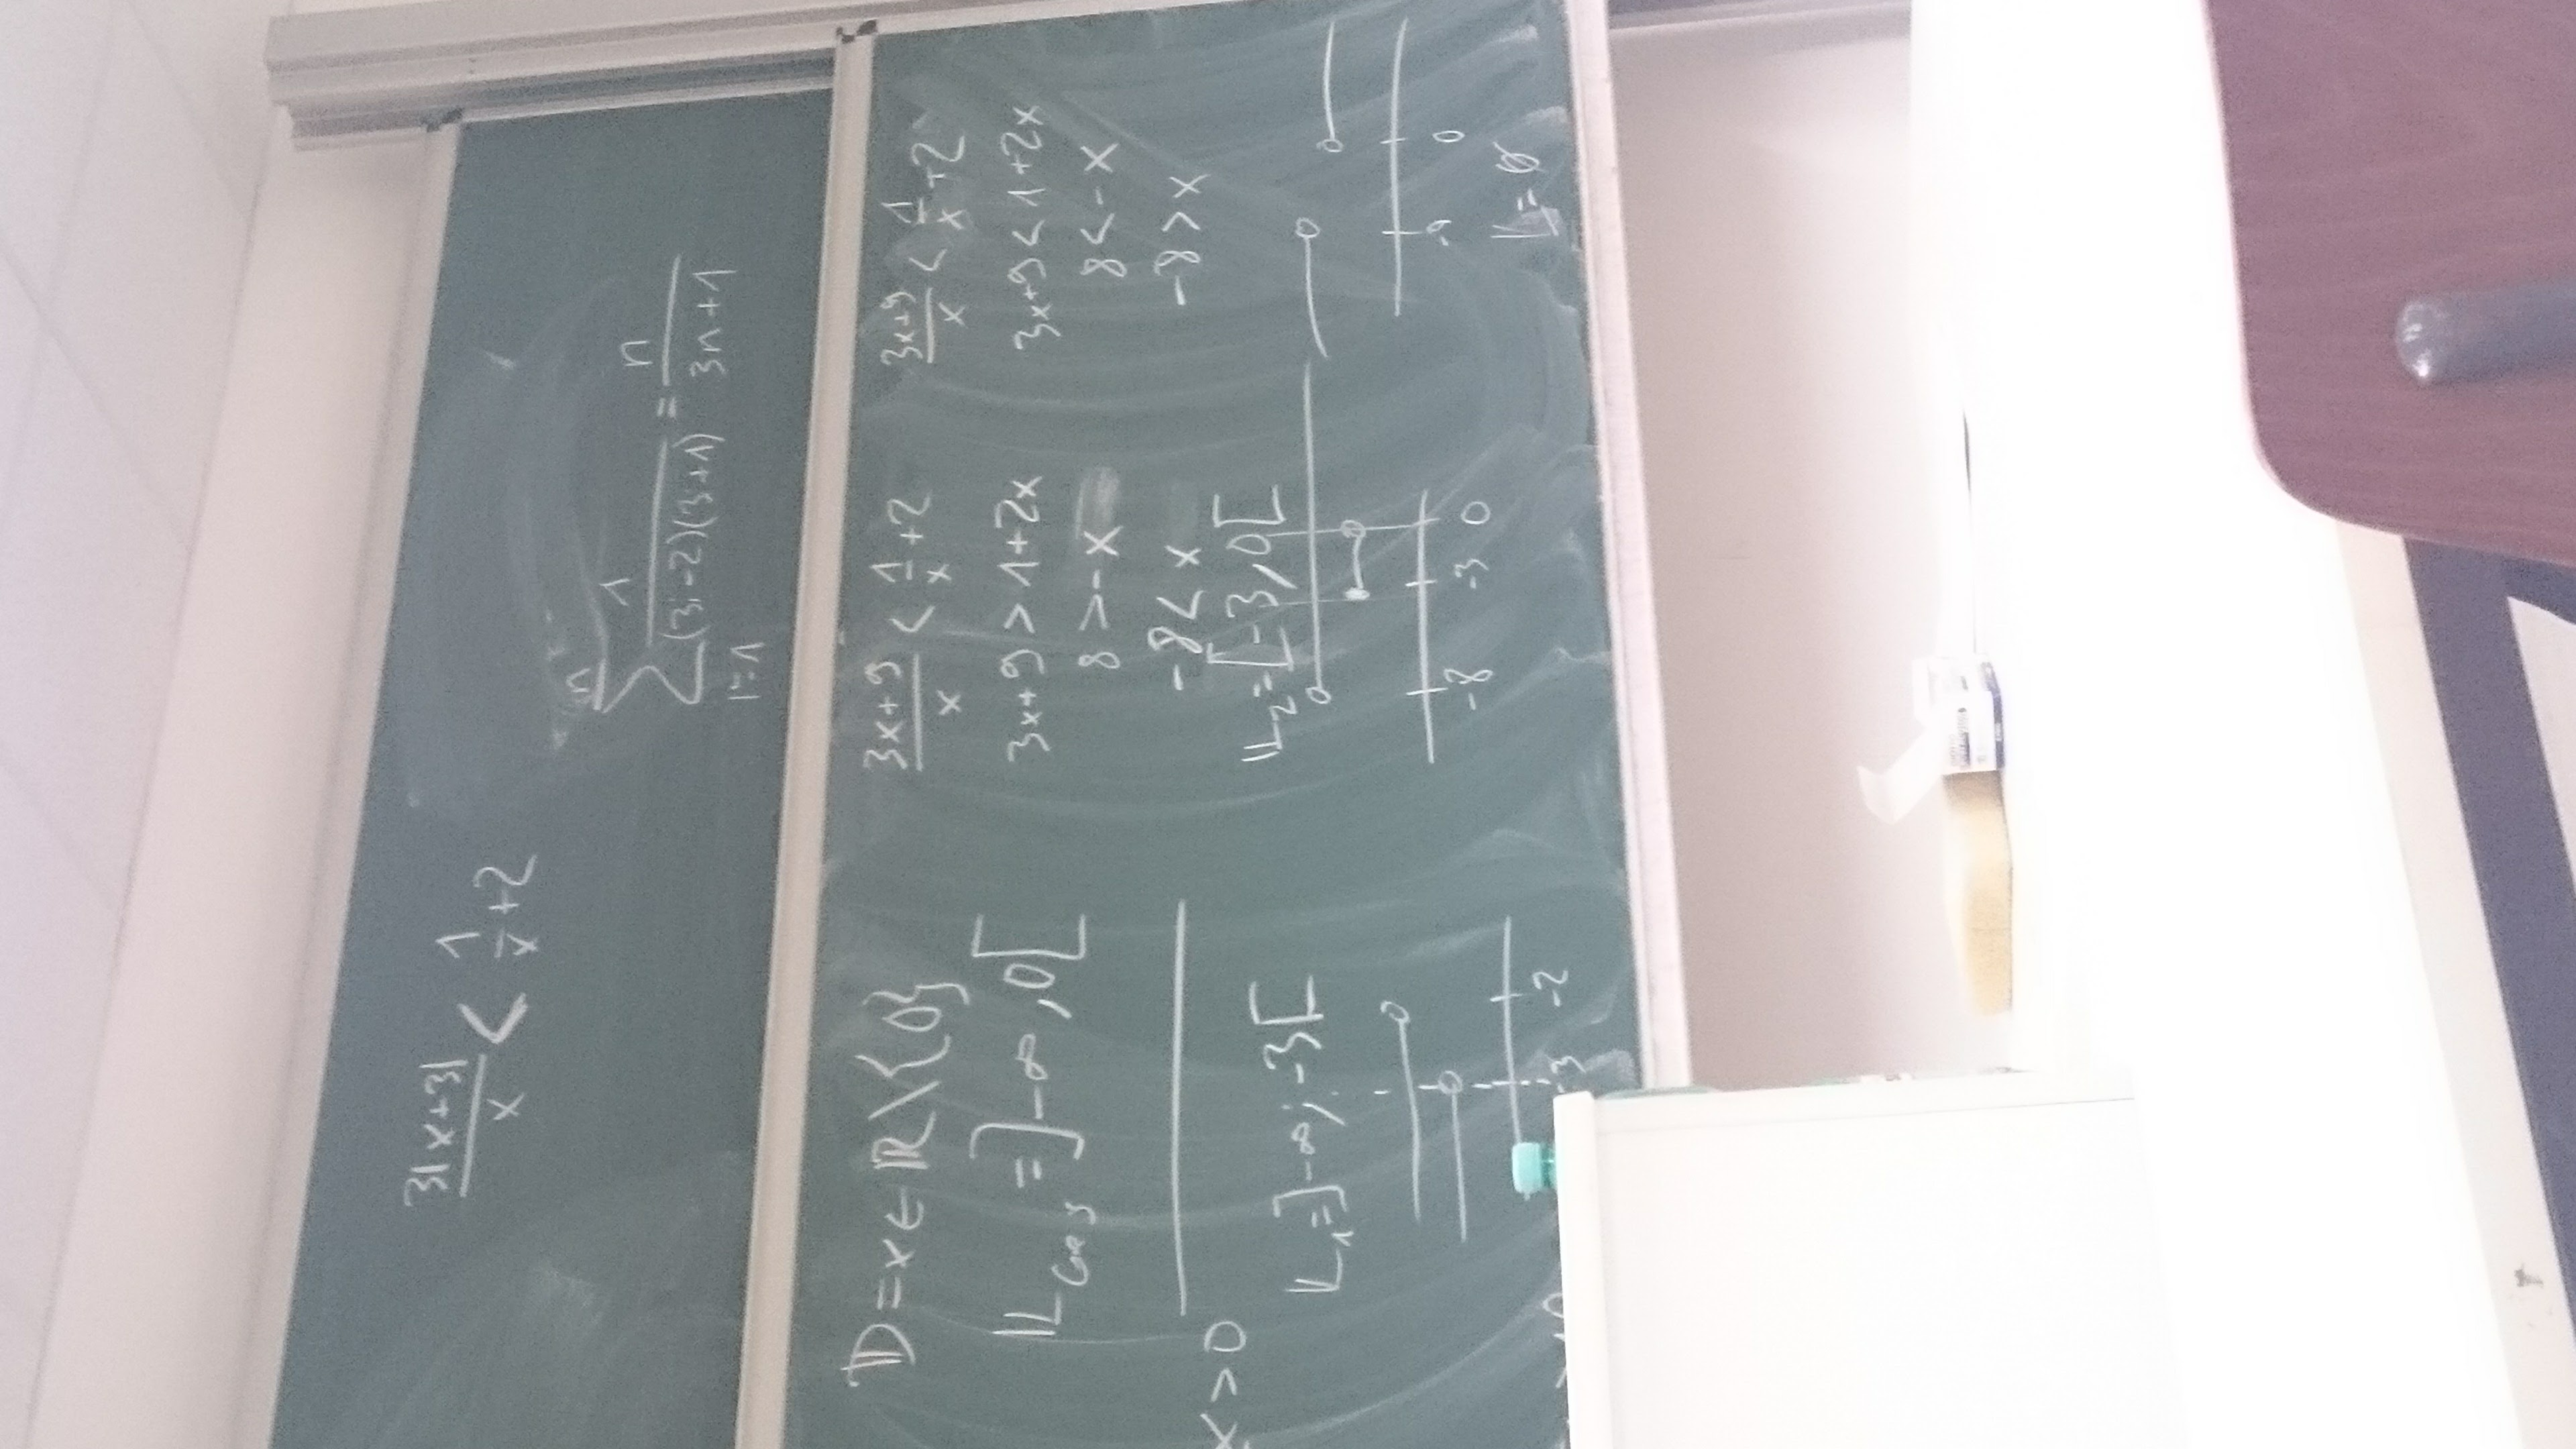 3|x+3|/x < 1/x +2
n
∑ 1/((3i-2)(3i+1)) = n/(3n+1)
i=1
D=x∈ℝ\{0}
𝕃Ges =]-∞,0[
x>0
𝕃1=]-∞;-3[
-3 -2
(3x+9)/x < 1/x +2
3x+9>1+2x
8>-x
-8<x
𝕃2=[-3,0[
-8 -3 0
(3x+9)/x < 1/x +2
3x+9<1+2x
8<-x
-8>x
0
𝕃=∅